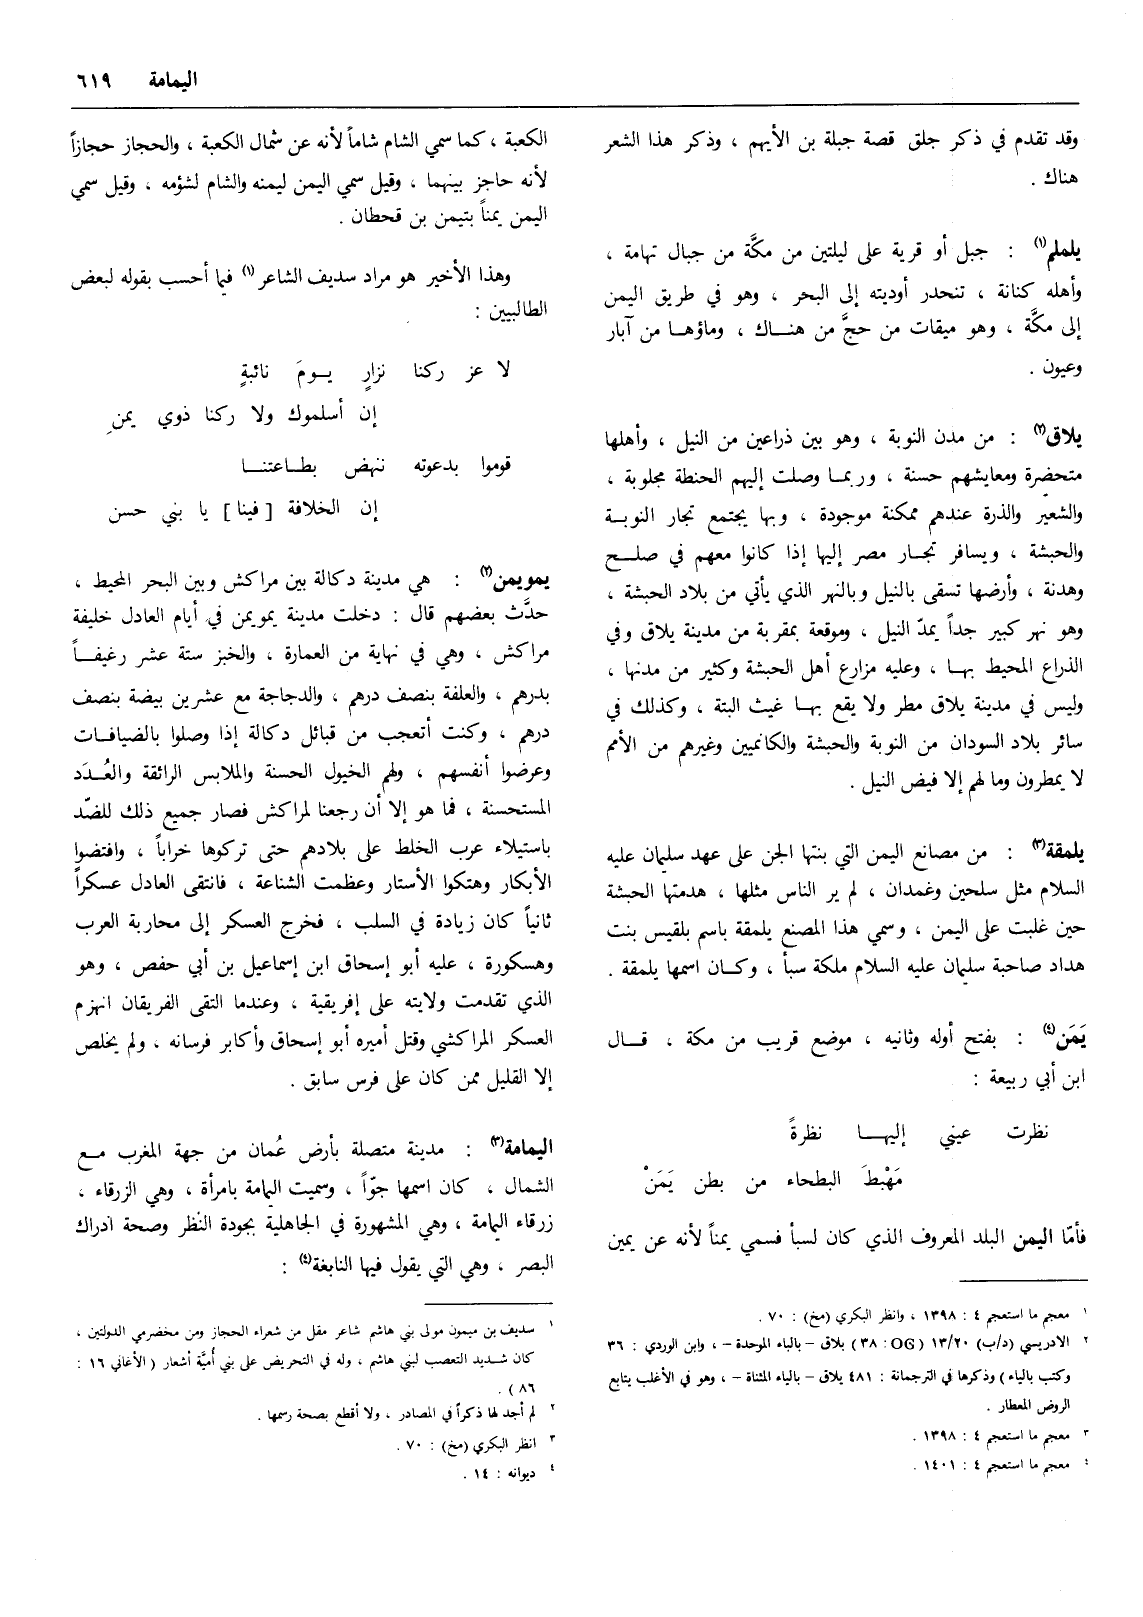 اليمامة ٦١٩
وقد تقدم في ذكر جلق قصة جبلة بن الأيهم ، وذكر هذا الشعر
هناك .
يلملم(١) : جبل أو قرية على ليلتين من مكَّة من جبال تهامة ،
وأهله كنانة ، تنحدر أوديته إلى البحر ، وهو في طريق اليمن
إلى مكَّة ، وهو ميقات من حجَّ من هنـاك ، وماؤهـا من آبار
وعيون .
يلاق(٢) : من مدن النوبة ، وهو بين ذراعين من النيل ، وأهلها
متحضرة ومعايشهم حسنة ، وربمـا وصلت إليهم الحنطة مجلوبة ،
والشعير والذرة عندهم ممكنة موجودة ، وبها يجتمع تجار النوبـة
والحبشة ، ويسافر تجـار مصر إليها إذا كانوا معهم في صلـح
وهدنة ، وأرضها تسقى بالنيل وبالنهر الذي يأتي من بلاد الحبشة ،
وهو نهر كبير جداً يمدّ النيل ، وموقعة بمقربة من مدينة يلاق وفي
الذراع المحيط بهـا ، وعليه مزارع أهل الحبشة وكثير من مدنها ،
وليس في مدينة يلاق مطر ولا يقع بهـا غيث البتة ، وكذلك في
سائر بلاد السودان من النوبة والحبشة والكانميين وغيرهم من الأمم
لا يمطرون وما لهم إلا فيض النيل .
يلمقة(٣) : من مصانع اليمن التي بنتها الجن على عهد سليمان عليه
السلام مثل سلحين وغمدان ، لم ير الناس مثلها ، هدمتها الحبشة
حين غلبت على اليمن ، وسمي هذا المصنع يلمقة باسم بلقيس بنت
هداد صاحبة سليمان عليه السلام ملكة سبأ ، وكـان اسمها يلمقة .
يَمَن(٤) : بفتح أوله وثانيه ، موضع قريب من مكة ، قـال
ابن أبي ربيعة :
نظرت عيني إليهـا نظرةً
مَهْبطَ البطحاء من بطن يَمَنْ
فأمّا اليمن البلد المعروف الذي كان لسبأ فسمي يمناً لأنه عن يمين
١ معجم ما استعجم ٤ : ١٣٩٨ ، وانظر البكري (مخ) : ٧٠ .
٢ الادريسي (د/ب) ١٣/٢٠ ( OG : ٣٨ ) بلاق – بالباء الموحدة – ، وابن الوردي : ٣٦
وكتب بالياء ) وذكرها في الترجمانة : ٤٨١ يلاق – بالياء المثناة – ، وهو في الأغلب يتابع
الروض المعطار .
٣ معجم ما استعجم ٤ : ١٣٩٨ .
٤ معجم ما استعجم ٤ : ١٤٠١ .
الكعبة ، كما سمي الشام شاماً لأنه عن شمال الكعبة ، والحجاز حجازاً
لأنه حاجز بينهما ، وقيل سمي اليمن ليمنه والشام لشؤمه ، وقيل سمي
اليمن يمناً بتيمن بن قحطان .
وهذا الأخير هو مراد سديف الشاعر(١) فيما أحسب بقوله لبعض
الطالبيين :
لا عز ركنا نزارٍ يـومَ نائبةٍ
إن أسلموك ولا ركنا ذوي يمنِ
قوموا بدعوته ننهض بطـاعتنـا
إن الخلافة [فينا] يا بني حسن
يمويمن(٢) : هي مدينة دكالة بين مراكش وبين البحر المحيط ،
حدَّث بعضهم قال : دخلت مدينة يمويمن في أيام العادل خليفة
مراكش ، وهي في نهاية من العمارة ، والخبز ستة عشر رغيفـاً
بدرهم ، والعلفة بنصف درهم ، والدجاجة مع عشرين بيضة بنصف
درهم ، وكنت أتعجب من قبائل دكالة إذا وصلوا بالضيافـات
وعرضوا أنفسهم ، ولهم الخيول الحسنة والملابس الرائقة والعُدَد
المستحسنة ، فما هو إلا أن رجعنا لمراكش فصار جميع ذلك للضّد
باستيلاء عرب الخلط على بلادهم حتى تركوها خراباً ، وافتضوا
الأبكار وهتكوا الأستار وعظمت الشناعة ، فانتقى العادل عسكراً
ثانياً كان زيادة في السلب ، فخرج العسكر إلى محاربة العرب
وهسكورة ، عليه أبو إسحاق ابن إسماعيل بن أبي حفص ، وهو
الذي تقدمت ولايته على إفريقية ، وعندما التقى الفريقان انهزم
العسكر المراكشي وقتل أميره أبو إسحاق وأكابر فرسانه ، ولم يخلص
إلا القليل ممن كان على فرس سابق .
اليمامة(٣) : مدينة متصلة بأرض عُمان من جهة المغرب مـع
الشمال ، كان اسمها جوّاً ، وسميت اليمامة بامرأة ، وهي الزرقاء ،
زرقاء اليمامة ، وهي المشهورة في الجاهلية بجودة النظر وصحة ادراك
البصر ، وهي التي يقول فيها النابغة(٤) :
١ سديف بن ميمون مولى بني هاشم شاعر مقل من شعراء الحجاز ومن مخضرمي الدولتين ،
كان شـديد التعصب لبني هاشم ، وله في التحريض على بني أميَّة أشعار ( الأغاني ١٦ :
٨٦ ) .
٢ لم أجد لها ذكراً في المصادر ، ولا أقطع بصحة رسمها .
٣ انظر البكري (مخ) : ٧٠ .
٤ ديوانه : ١٤ .